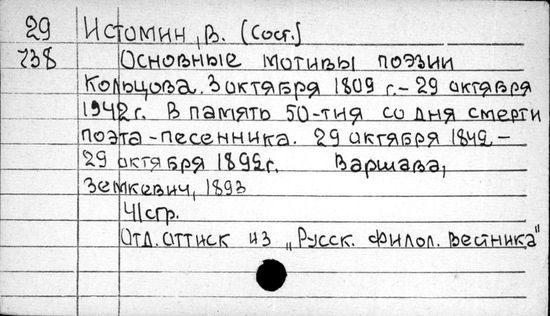 29 Истомин, В. (Сост.)
738 Основные мотивы поэзии
Кольцова. 3 октября 1809 г. - 29 октября
1942 г. В память 50-тия со дня смерти
поэта-песенника. 29 октября 1842 -
29 октября 1892 г. Варшава,
Земкевич, 1893
41стр.
Отд. оттиск из „Русск. филол. вестника"